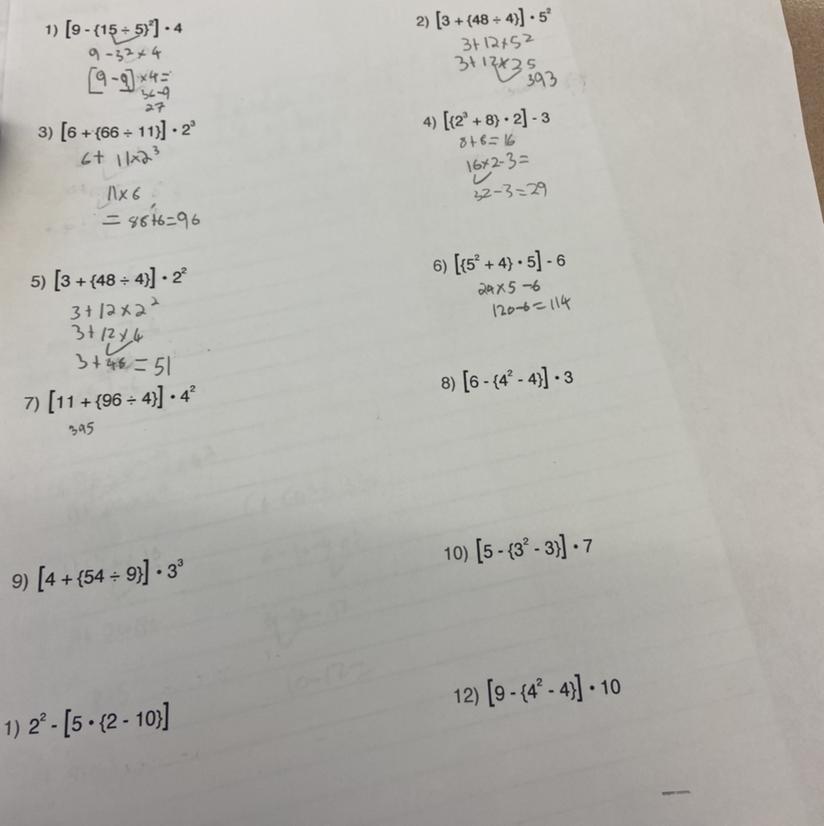 1) [9 - {15 ÷ 5}²] • 4
9 - 3² × 4
[9 - 9] × 4 =
36-9
27
2) [3 + {48 ÷ 4}] • 5²
3 + 12 × 5²
3 + 12 × 25
393
3) [6 + {66 ÷ 11}] • 2³
6 + 11×2³
11 × 6
= 88+6=96
4) [{2³ + 8} • 2] - 3
8+8=16
16×2-3=
32-3=29
5) [3 + {48 ÷ 4}] • 2²
3 + 12 × 2²
3 + 12 × 4
3 + 48 = 51
6) [{5² + 4} • 5] - 6
24 × 5 - 6
120-6=114
7) [11 + {96 ÷ 4}] • 4²
395
8) [6 - {4² - 4}] • 3
9) [4 + {54 ÷ 9}] • 3³
10) [5 - {3² - 3}] • 7
1) 2² - [5 • {2 - 10}]
12) [9 - {4² - 4}] • 10